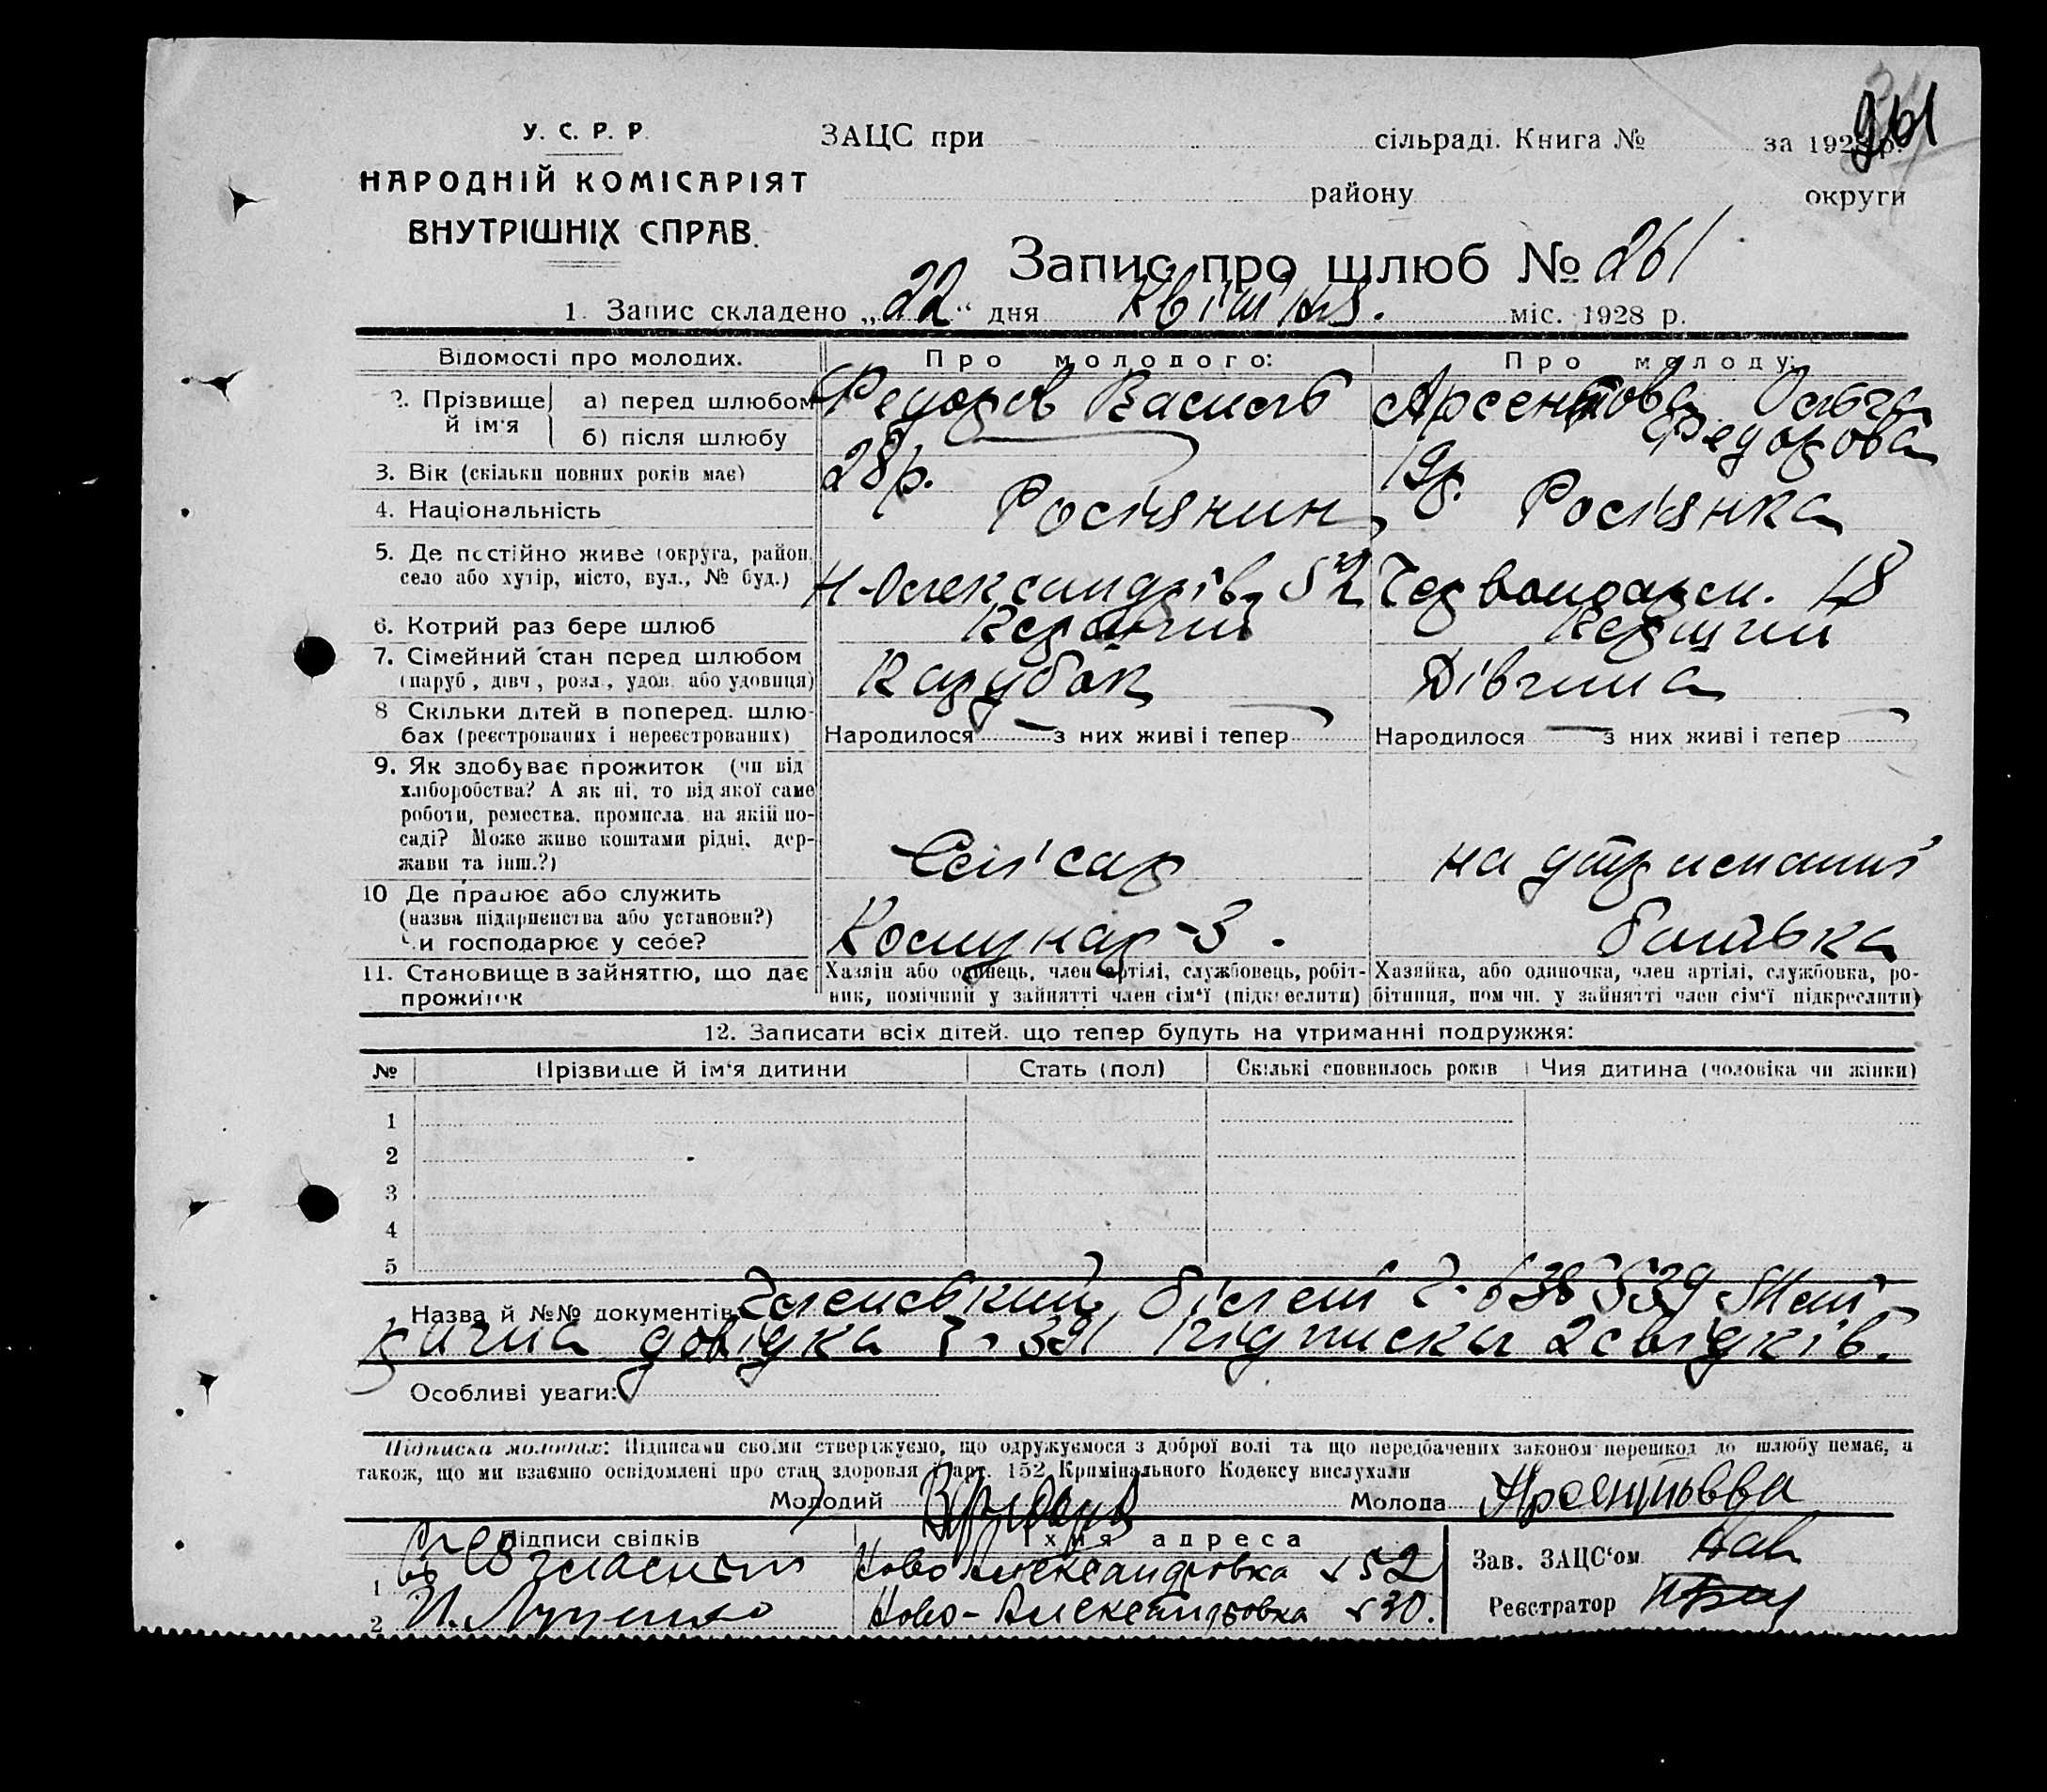 261
У. С. Р. Р.
НАРОДНІЙ КОМІСАРІЯТ
ВНУТРІШНІХ СПРАВ.
ЗАЦС при сільраді. Книга № за 1928 р.
району округи
Запис про шлюб № 261
1. Запис складено „22“ дня квітня. міс. 1928 р.
Відомості про молодих. Про молодого: Про молоду:
2. Прізвище й ім'я
а) перед шлюбом Федоров Василь Арсентьова Ольга
б) після шлюбу Федорова
3. Вік (скільки повних років має) 28 р. 19 р.
4. Національність Росіянин Росіянка
5. Де постійно живе (округа, район, село або хутір, місто, вул., № буд.) Н-Олександрів. 52 Червоноарм. 18
6. Котрий раз бере шлюб Перший Перший
7. Сімейний стан перед шлюбом (паруб., дівч., розл., удов. або удовиця) Парубок Дівчина
8 Скільки дітей в поперед. шлюбах (реєстрованих і нереєстрованих) Народилося — з них живі і тепер — Народилося — з них живі і тепер —
9. Як здобуває прожиток (чи від
хліборобства? А як ні, то від якої саме
роботи, ремества, промисла, на якій по-
саді? Може живе коштами рідні, дер-
жави та інш.?) Слюсар на утриманні
10 Де працює або служить
(назва підприємства або установи?)
Чи господарює у себе? Комунар-3. батька
11. Становище в зайняттю, що дає прожиток
Хазяін або одинець, член артілі, службовець, робіт-
ник, помічний у зайнятті член сім'ї (підкреслити)
Хазяйка, або одиночка, член артілі, службовка, ро-
бітниця, пом чн. у зайнятті член сім'ї підкреслити)
12. Записати всіх дітей, що тепер будуть на утриманні подружжя:
№ Прізвище й ім'я дитини Стать (пол) Скількі сповнилось років Чия дитина (чоловіка чи жінки)
1
2
3
4
5
Назва й №№ документів Членський білет ч. 638539 Мет
рична довідка ч. 391 Підписка 2 свідків.
Особливі уваги:
Підписка молодих: Підписами своїми стверджуємо, що одружуємося з доброї волі та що передбачених законом перешкод до шлюбу немає, а
також, що ми взаємно освідомлені про стан здоровля і арт. 152 Кримінального Кодексу вислухали
Молодий Молода Арсентьева
Підписи свідків Їхня адреса
1 Ново Александровка 52
2 Ново-Александровка 30.
Зав. ЗАЦС'ом
Реєстратор